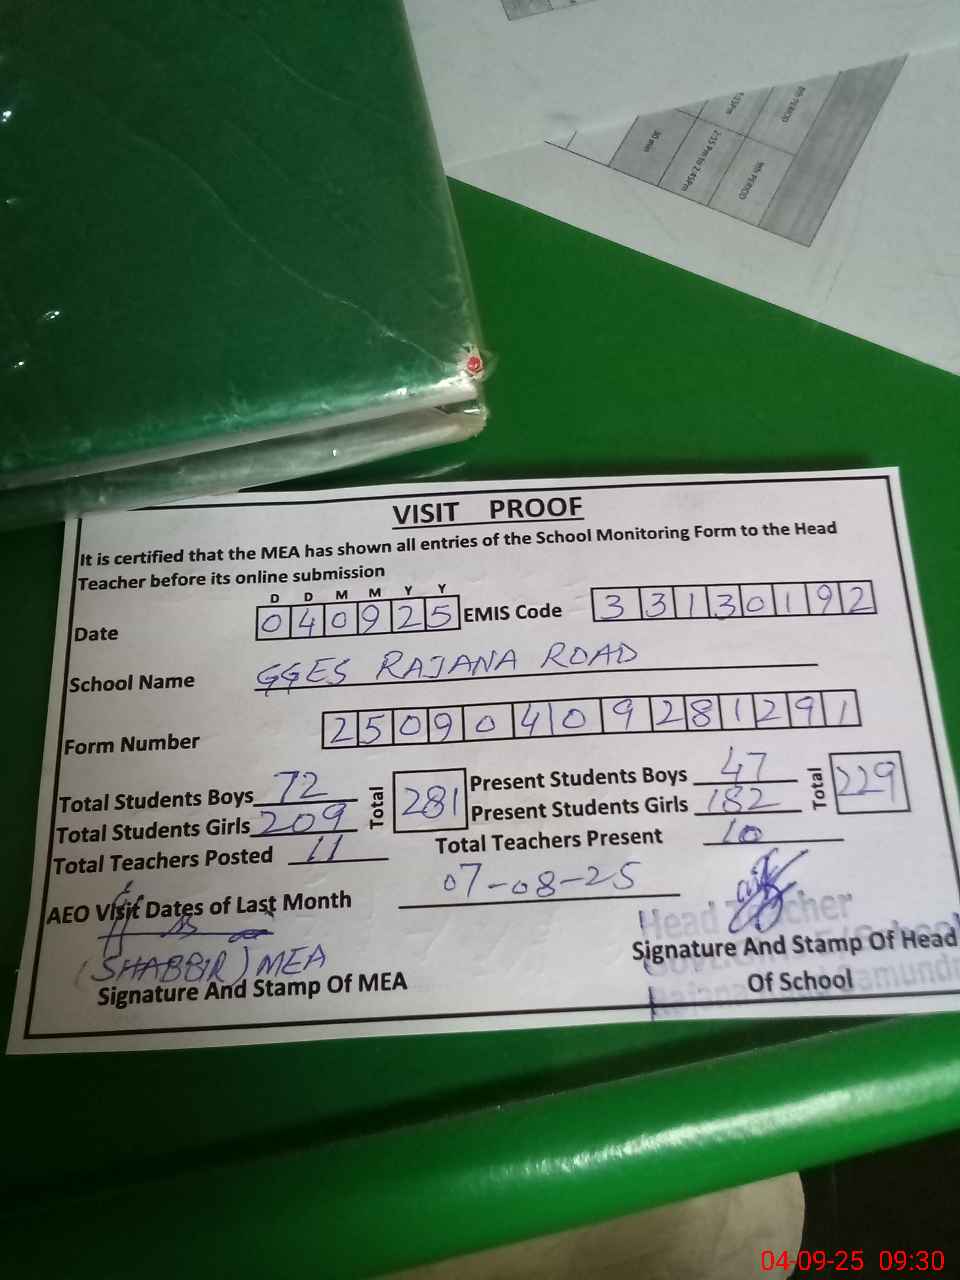 8th PERIOD
9th PERIOD
2:15 Pm to 2:45Pm
30 min
VISIT PROOF
It is certified that the MEA has shown all entries of the School Monitoring Form to the Head
Teacher before its online submission
D D M M Y Y
Date 0 4 0 9 2 5 EMIS Code 3 3 1 3 0 1 9 2
School Name GGES RAJANA ROAD
Form Number 2 5 0 9 0 4 0 9 2 8 1 2 9 1
Total Students Boys 72 Total 281 Present Students Boys 47 Total 229
Total Students Girls 209 Present Students Girls 182
Total Teachers Posted 11 Total Teachers Present 10
AEO Visit Dates of Last Month 07-08-25
Head Teacher
(SHABBIR) MEA
Signature And Stamp Of MEA
Signature And Stamp Of Head
Of School
04-09-25 09:30